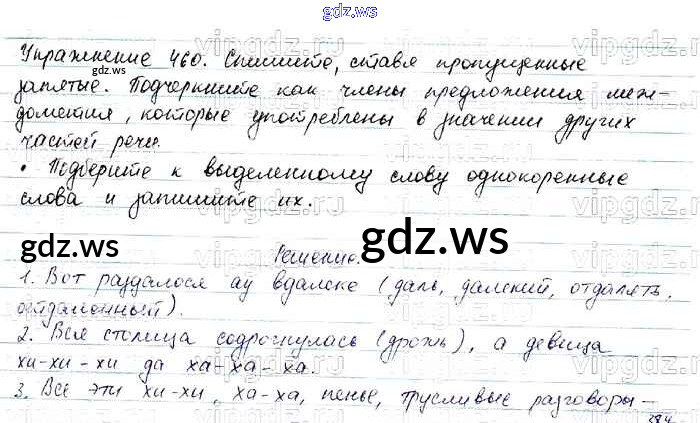 gdz.ws
Упражнение 460. Спишите, ставя пропущенные
gdz.ws
запятые. Подчеркните как члены предложения меж-
дометия, которые употреблены в значении других
частей речи.
• Подберите к выделенному слову однокоренные
слова и запишите их.
gdz.ws
gdz.ws
Решение.
1. Вот раздалося ау вдалеке (даль, далекий, отдалять,
отдаленный).
2. Вся столица содрогнулась (дрожь), а девица
хи-хи-хи да ха-ха-ха.
3. Все эти хи-хи, ха-ха, пенье, трусливые разговоры –
gdz.ws